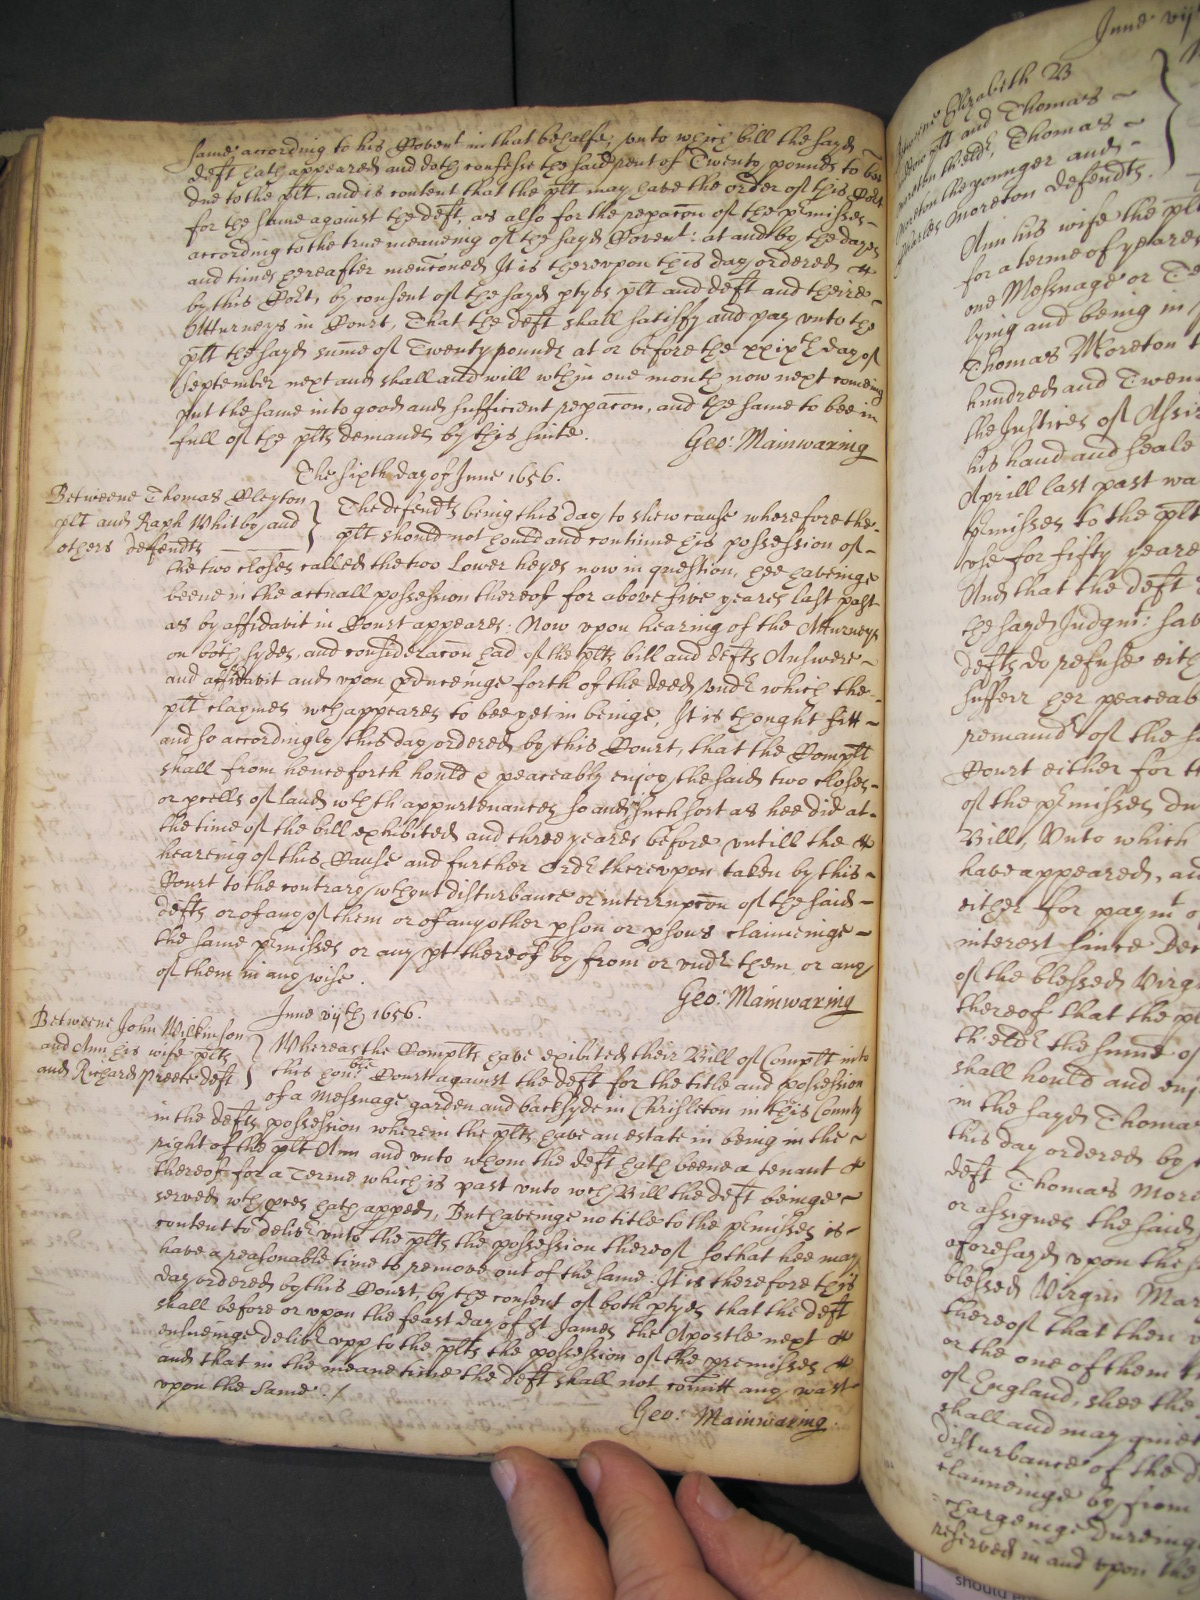 same according to his Covent in that behalfe, vnto which bill the sayd
deft hath appeared and doth confesse the said rent of Twenty pounds to bee
due to the plt, and is content that the plt may have the order of this Cort
for the same against the deft, as also for the reparacon of the prmisses
according to the true meaneing of the sayd Covent: at and by the dayes
and times hereafter menconed, It is therevpon this day ordered
by this Cort, by consent of the sayd ptyes plt and deft and theire
Atturneys in Court, That the deft shall satisfy and pay vnto the
plt the sayd sume of Twenty pounds at or before the xxixth day of
September next and shall and will wthin one month now next comeing
put the same into good and sufficient reparacon, and the same to bee in
full of the plts demands by this suite.
Geo: Mainwaring
The sixth day of June 1656.
Betweene Thomas Cleyton
plt and Raph Whitby and
others defendts
The defendts being this day to shew cause wherefore the
plt should not hould and continue his possession of
the two closes called the two Lower heyes now in question, hee haveinge
beene in the actuall possession thereof for above five yeares last past
as by affidavit in Court appeares: Now vpon hearing of the Atturneys
on both sydes, and consideracon had of the plts bill and defts Answere
and affidavit and vpon produceinge forth of the deed vndr which the
plt claymes wch appeares to bee yet in beinge, It is thought fitt
and so accordingly this day ordered by this Court, that the Complt
shall from henceforth hould & peaceably enjoy the said two closes
or pcells of land wth th appurtenances so and in such sort as hee did at
the time of the bill exhibited and three yeares before vntill the
hearing of this Cause and further Ordr therevpon taken by this
Court to the contrary wthout disturbance or interrupcon of the said
defts or of any of them or of any other pson or psons claimeinge
the same prmisses or any pt thereof by from or vndr them or any
of them in any wise.
Geo: Mainwaring
June vijth 1656.
Betweene John Wilkinson
and Ann his wife plts
and Richard Preece deft
Whereas the Complts have exibited their Bill of Complt into
this honble Court against the deft for the title and possession
of a Messuage garden and backsyde in Christleton in this County
in the defts possession wherein the plts have an estate in being in the
right of the plt Ann and vnto whom the deft hath beene a tenant
thereof for a Terme which is past vnto wch Bill the deft beinge
served wth pces hath apped, But haveinge no title to the prmisses is
content to deliver vnto the plts the possession thereof so that hee may
have a reasonable time to remove out of the same. It is therefore this
day ordered by this Court, by the consent of both ptyes that the deft
shall before or vpon the feast day of St James the Apostle next
ensueinge deliver vpp to the plts the possession of the premisses
and that in the meane time the deft shall not comitt any wast
vpon the same.
Geo: Mainwaring.
June vij
Elizabeth B
plt and Thomas
Thomas
the younger and
Charles Moreton defendts.
Ann his wife the plt
for a terme of yeares
one Messuage or Te
lying and being in
Thomas Moreton
hundred and Twen
the Justices of Assiz
his hand and seale
Aprill last past wa
prmisses to the plt
vse for fifty yeare
And that the deft
the sayd Judgmt: sav
defts do refuse eith
suffer her peaceab
remaindr of the
Court either for
of the prmisses du
Bill, Vnto which
have appeared, an
either for paymt o
interest since Dec
of the blessed Virgi
thereof that the pl
th eldr the sume of
shall hould and enj
in the sayd Thomas
this day ordered by
deft Thomas More
or assignes the said
aforesayd vpon the
blessed Virgin Mar
thereof that then
or the one of them
of England, shee the
shall and may quiet
disturbance of the d
claimeinge by from
chargeinge dureing
reserved in and vpon the
should